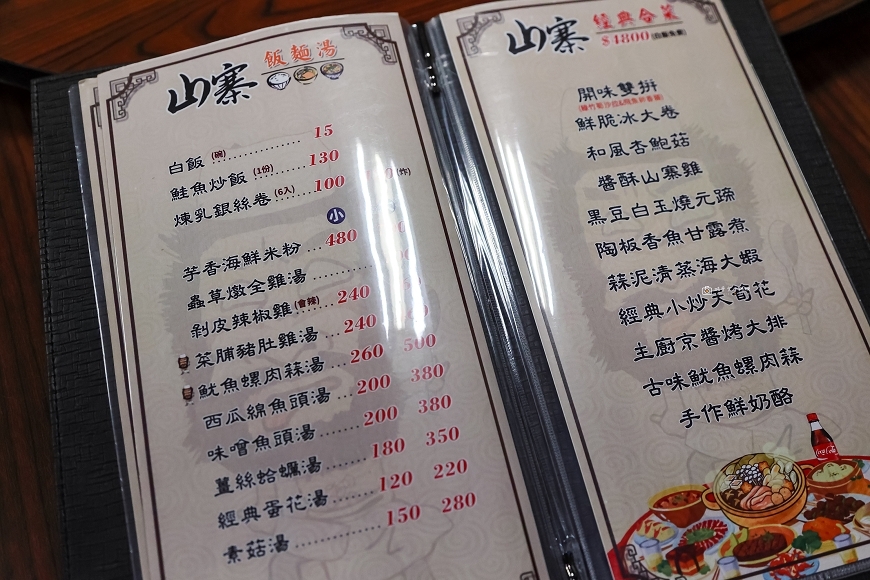 山寨 飯麵湯
白飯(碗)..............15
鮭魚炒飯(1份)........130
煉乳銀絲卷(6入)....100 (炸)
小
芋香海鮮米粉...480
蟲草燉全雞湯............
剝皮辣椒雞(會辣)...240
菜脯豬肚雞湯....240
魷魚螺肉蒜湯....260 500
西瓜綿魚頭湯....200 380
味噌魚頭湯.......200 380
薑絲蛤蠣湯.......180 350
經典蛋花湯.......120 220
素菇湯..............150 280
山寨 經典合菜
$4800
開味雙拼
鮮脆冰大卷
和風杏鮑菇
醬酥山寨雞
黑豆白玉燒元蹄
陶板香魚甘露煮
蒜泥清蒸海大蝦
經典小炒天荀花
主廚京醬烤大排
古味魷魚螺肉蒜
手作鮮奶酪
Coca-Cola